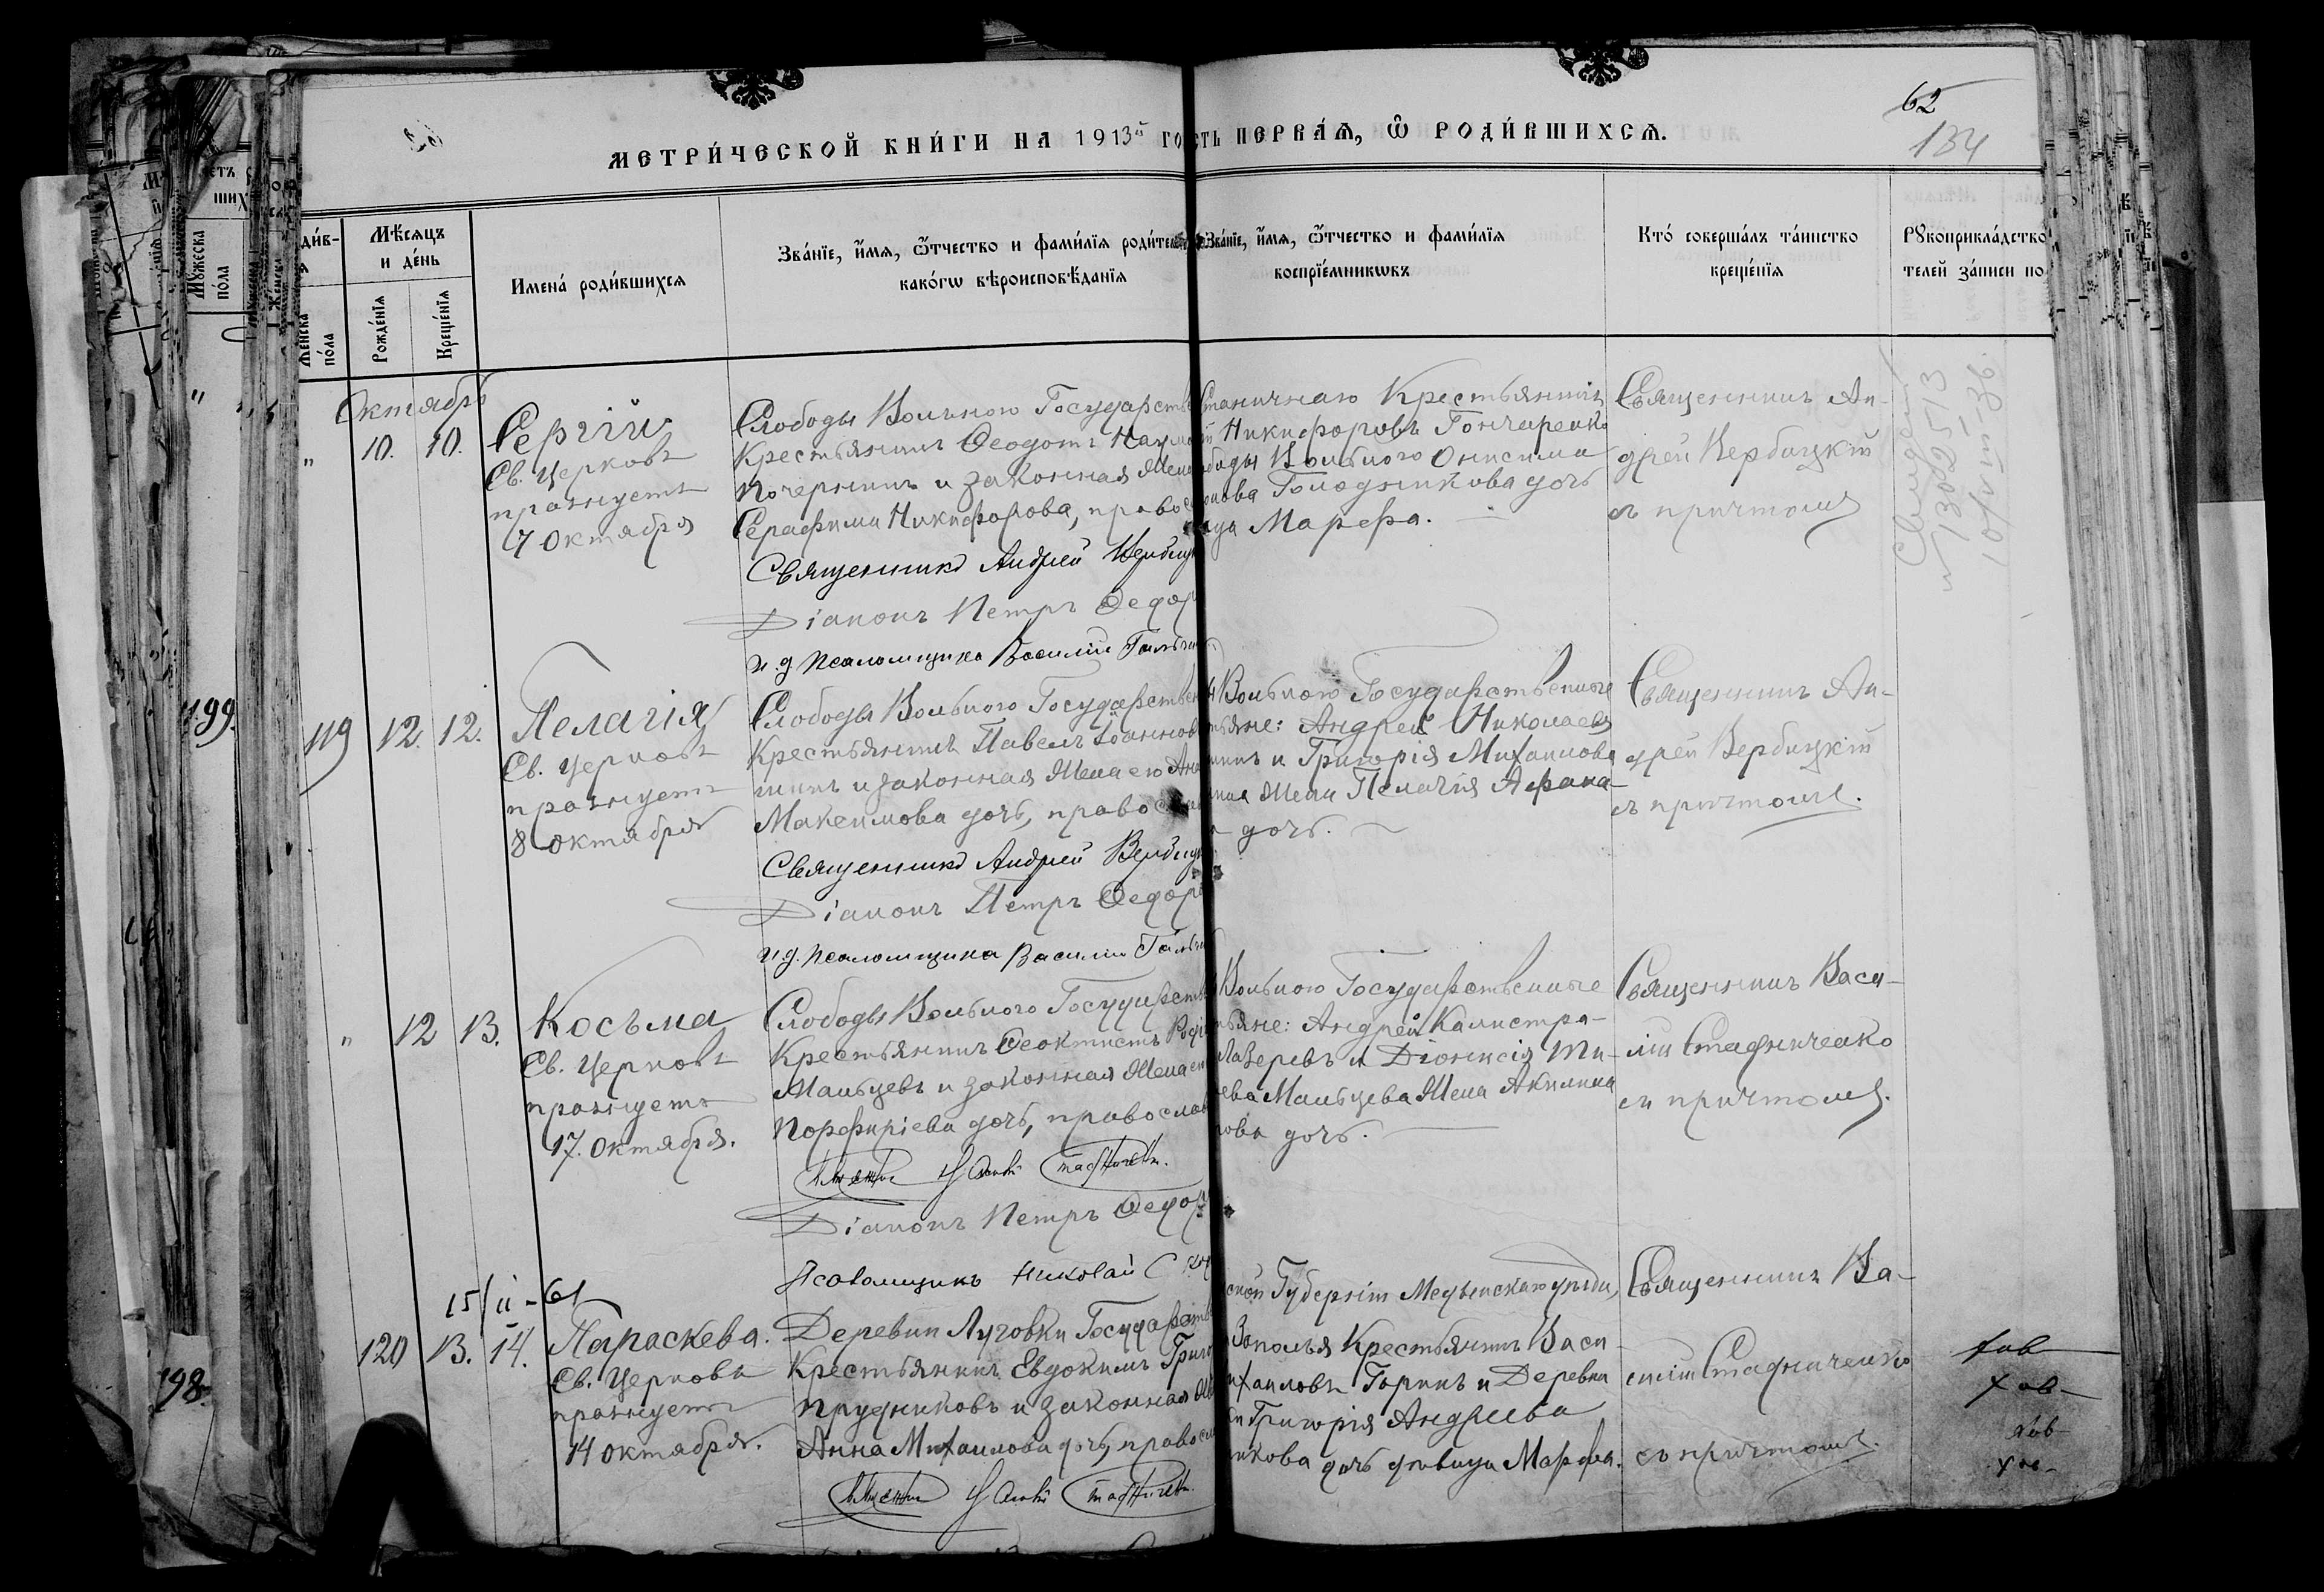 62
134
МЕТРИ́ЧЕСКОЙ КНИ́ГИ НА 1913й ГО
СТЬ ПЕРВА́Я, Ѿ РОДИ́ВШИХСЯ.
Мѣ́сяцъ и де́нь
Рожде́нїѧ
Креще́нїѧ
Женска по́ла
Имена́ роди́вшихсѧ
Зва́нїе, и҆́мѧ, ѻ҆́тчество и фами́лїѧ роди́тел
како́гѡ вѣроисповѣ́данїѧ
Зва́нїе, и҆́мѧ, ѻ҆́тчество и фами́лїѧ
воспрїе́мникѡвъ
Кто̀ соверша́лъ та́инство
креще́нїѧ
Рꙋкоприкла́дство
телей за́писи по
Октябрь
" 10. 10.
Сергій
Св. Церковь
празнуетъ
7 Октября
Слободы Вольного Государств
Крестьянинъ Ѳеодотъ Наум
Почернинъ и законная Жена
Серафима Никифорова, правос
Священникъ Андрей Вербиц
Діаконъ Петръ Ѳедор
и.д. псаломщика Василій Гальч
Станичнаго Крестьянинъ
Никифоровъ Гончаренко
Слободы Вольного Онисима
Голодникова дочь
Марфа.
Священникъ Ан-
дрей Вербицкій
съ причтомъ
119 12. 12.
Пелагія
Св. Церковь
празнуетъ
8 октября
Слободы Вольного Государствен
Крестьянинъ Павелъ Іоаннов
нинъ и законная Жена его Ана
Максимова дочь, правосла
Священникъ Андрей Вербиц
Діаконъ Петръ Ѳедор
и.д. псаломщика Василій Гальч
Вольного Государственные
тьяне: Андрей Николаевъ
нинъ и Григорія Михаилова
ная Жена Пелагія Афана-
дочь.
Священникъ Ан-
дрей Вербицкій
съ причтомъ.
" 12 13.
Косьма
Св. Церковь
празнуетъ
17. Октября.
Слободы Вольного Государств
Крестьянинъ Ѳеоктистъ Роді
Мальцевъ и законная Жена его
Порфиріева дочь, православ
Діаконъ Петръ Ѳедор
Псаломщикъ Николай С
Вольного Государственные
тьяне: Андрей Калистра-
Лазеревъ и Діонисія Ти-
ева Мальцева Жена Акилина
ова дочь.
Священникъ Васи-
лій Стадниченко
съ причтомъ.
15/II-61
120 13. 14.
Параскева.
Св. Церковь
празнуетъ
14 октября.
Деревни Луговки Государств
Крестьянинъ Евдокимъ Григо
Прудниковъ и законная Же
Анна Михаилова дочь, правосл
ской Губерніи Медынскаго уѣзда,
Заполья Крестьянинъ Васи
ихаиловъ Горинъ и Деревни
Григорія Андреева
икова дочь дѣвица Марфа.
Священникъ Ва-
силій Стадниченко
съ причтомъ.
199.
198.